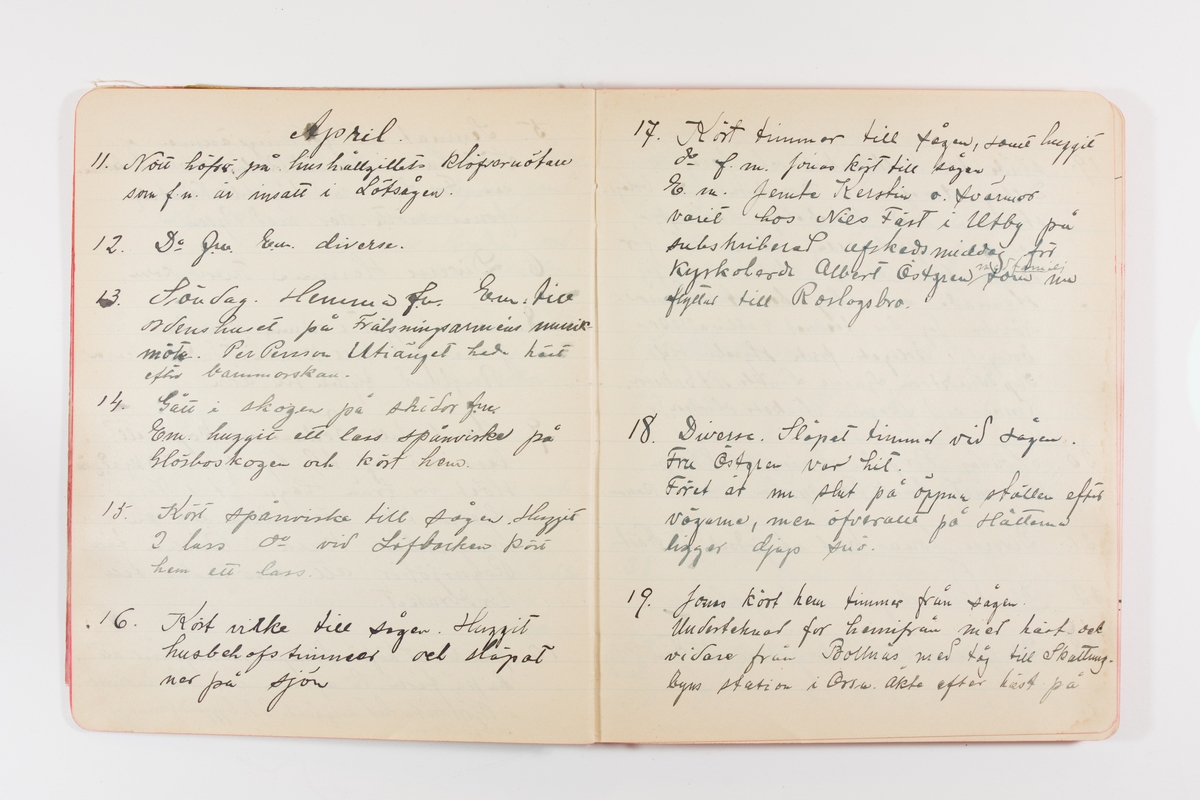 April.
11. Nött höfrö på hushållgillets klöfvernötare
som f.n. är insatt i Lötsågen.
12. Do fm. Em. diverse.
13. Söndag. Hemma fm. Em. till
ordenshuset på Frälsningsarméens musik
möte. Per Persson Utiänget hade häst
efter barnmorskan.
14. Gått i skogen på skidor fm.
Em. huggit ett lass spånvirke på
Glösboskogen och kört hem.
15. Kört spånvirke till sågen. Huggit
2 lass do vid Löfbacken kört
hem ett lass.
16. Kört virke till sågen. Huggit
husbehofstimmer och släpat
ner på sjön
17. Kört timmer till sågen, samt huggit
do f.m. Jonas kört till sågen
E.m. jemte Kerstin o. svärmor
varit hos Nils Fäst i Utby på
subskriberad afskedsmiddag för
Kyrkoherde Albert Östgren med familj som nu
flyttar till Roslagsbro.
18. Diverse. Släpat timmer vid sågen.
Fru Östgren var hit.
Föret är nu slut på öppna ställen efter
vägarna, men öfverallt på slätterna
ligger djup snö.
19. Jonas kört hem timmer från sågen.
Undertecknad for hemifrån med häst och
vidare från Bollnäs med tåg till Skattung-
byns station i Orsa. Åkte efter häst på